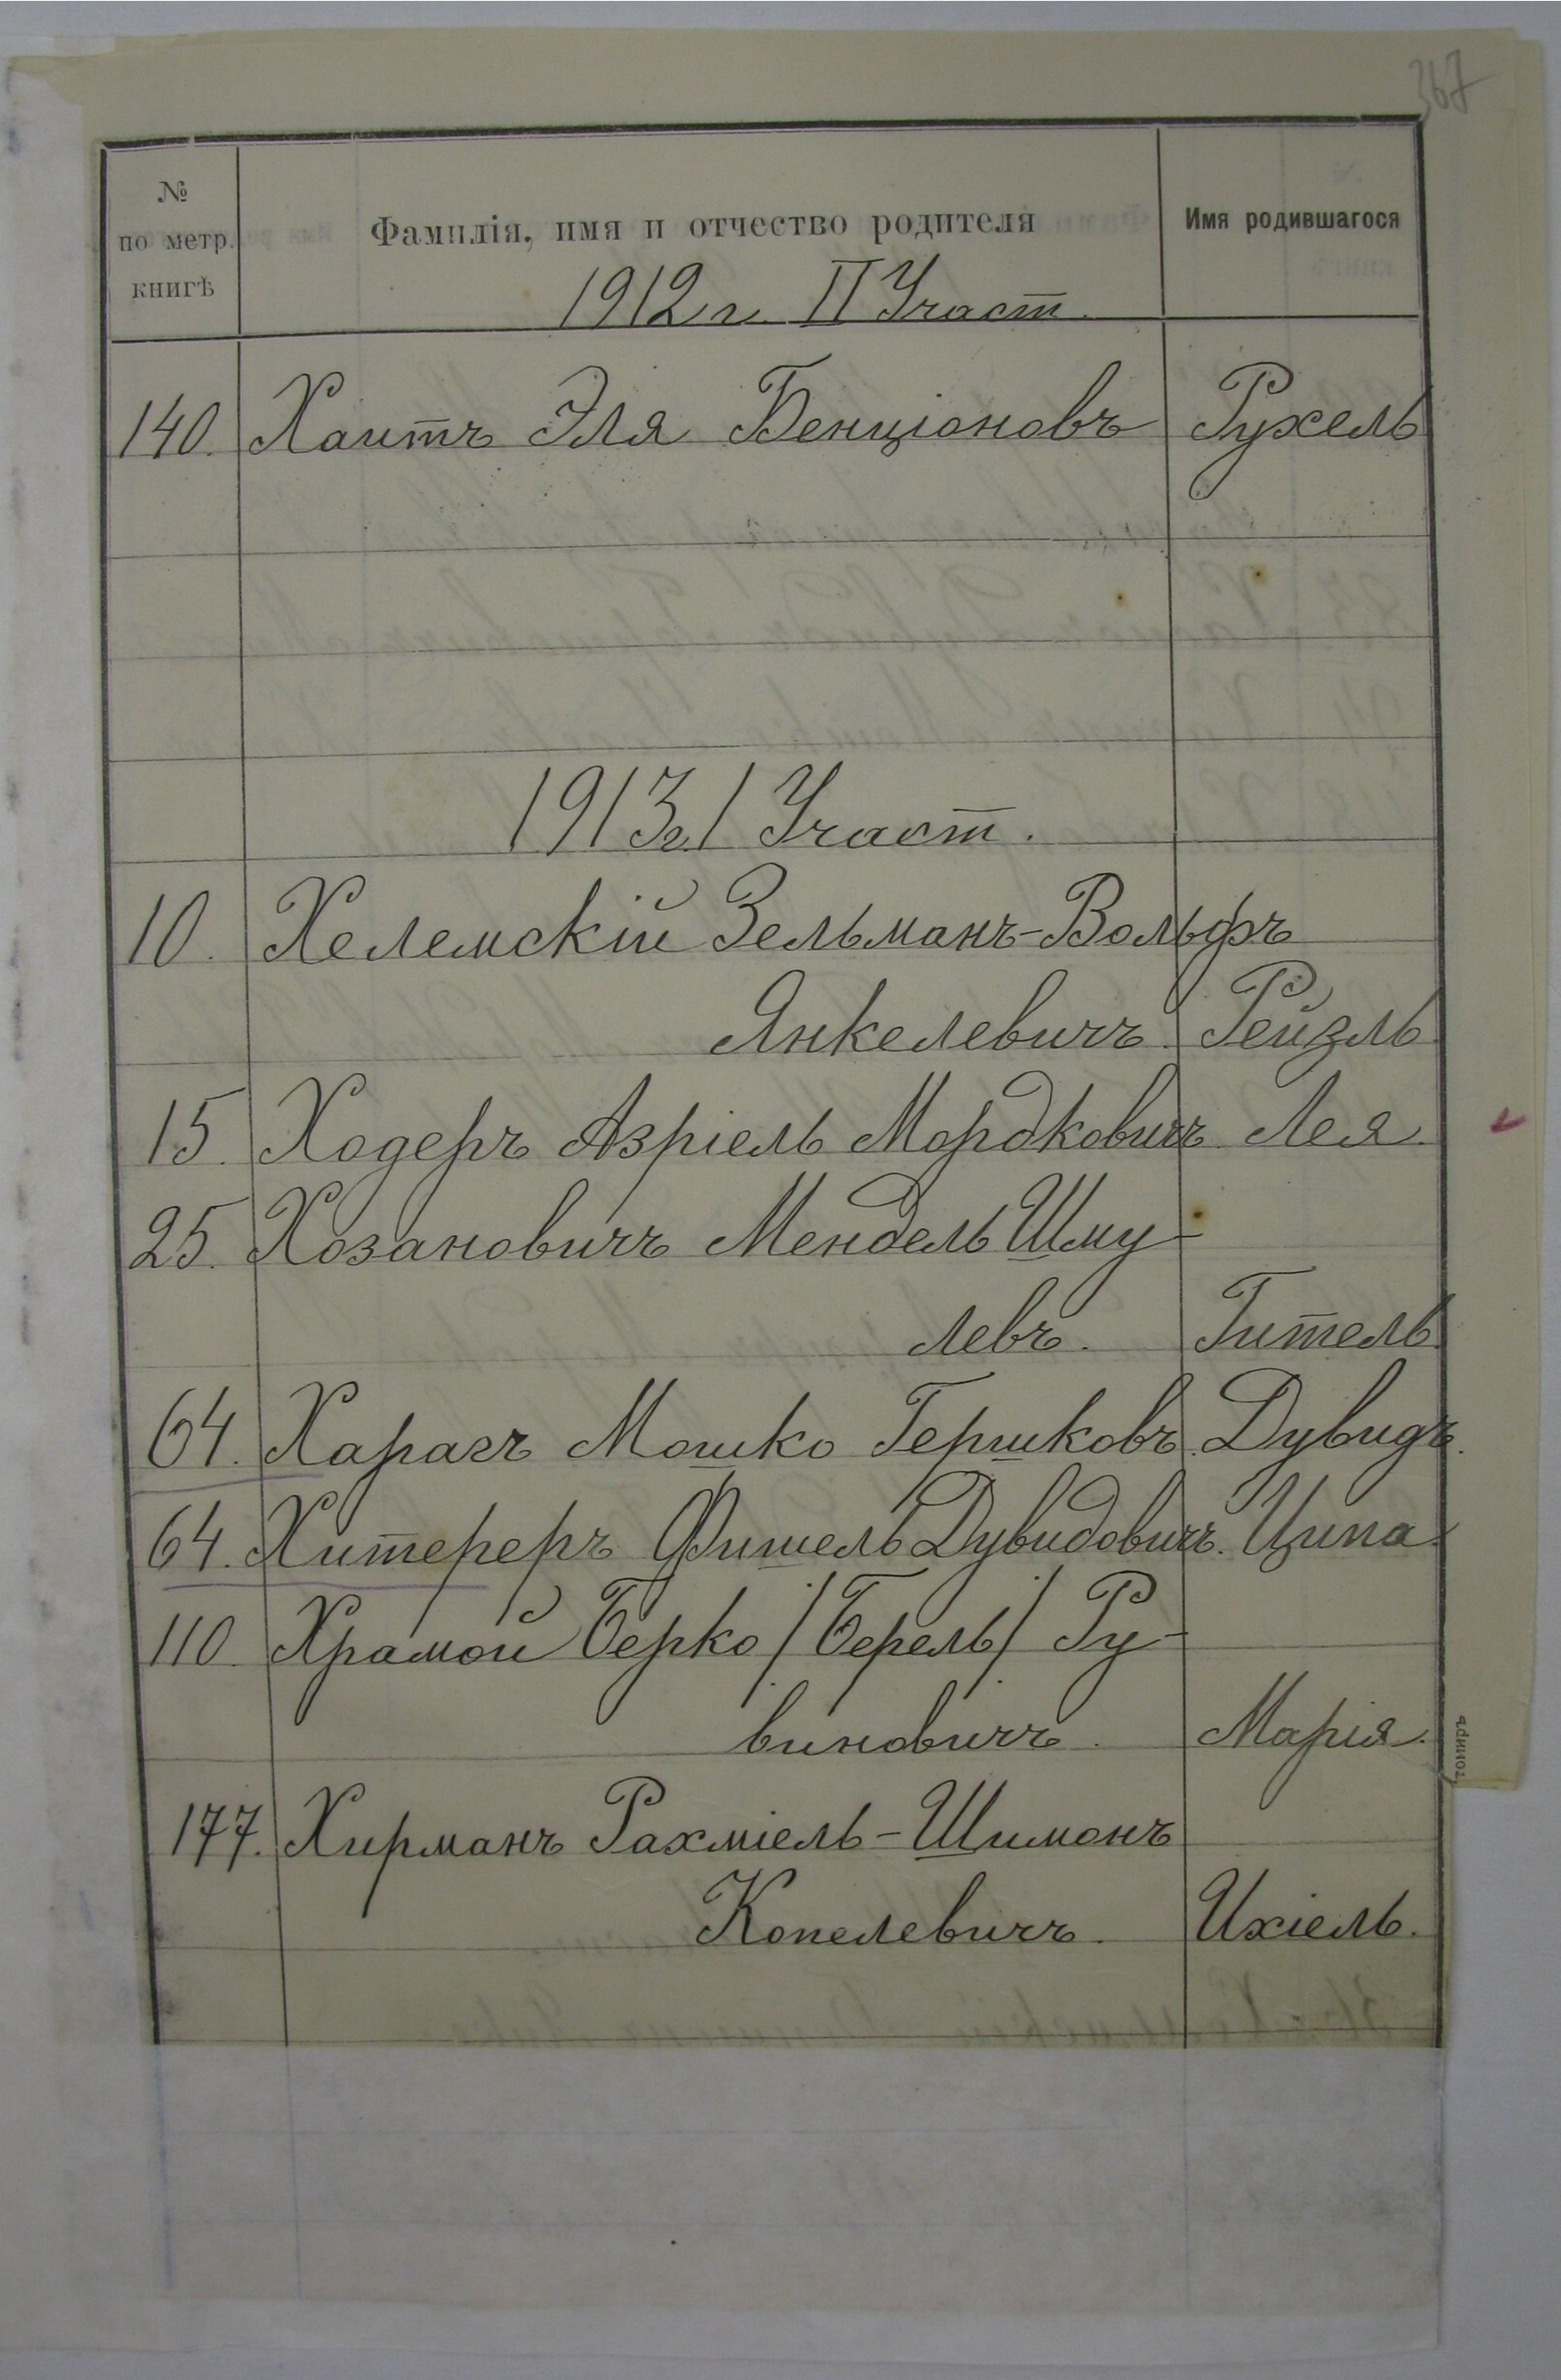 367
№ по метр. книгѣ Фамилія, имя и отчество родителя Имя родившагося
1912 г. II Участ.
140. Хаитъ Эля Бенціоновъ Рухель
1913 г. I Участ.
10. Хелемскій Зельманъ-Вольфъ
Янкелевичъ. Рейзль
15. Ходеръ Азріель Мордковичъ Лея.
25. Хозановичъ Мендель Шму-
левъ. Гитель.
64. Харагъ Мошко Гершковъ. Дувидъ.
64. Хитереръ Фишель Дувидовичъ. Ципа.
110. Храмой Берко /Берель/ Ру-
виновичъ. Марія.
177. Хирманъ Рахміель-Шимонъ
Копелевичъ. Ихіель.